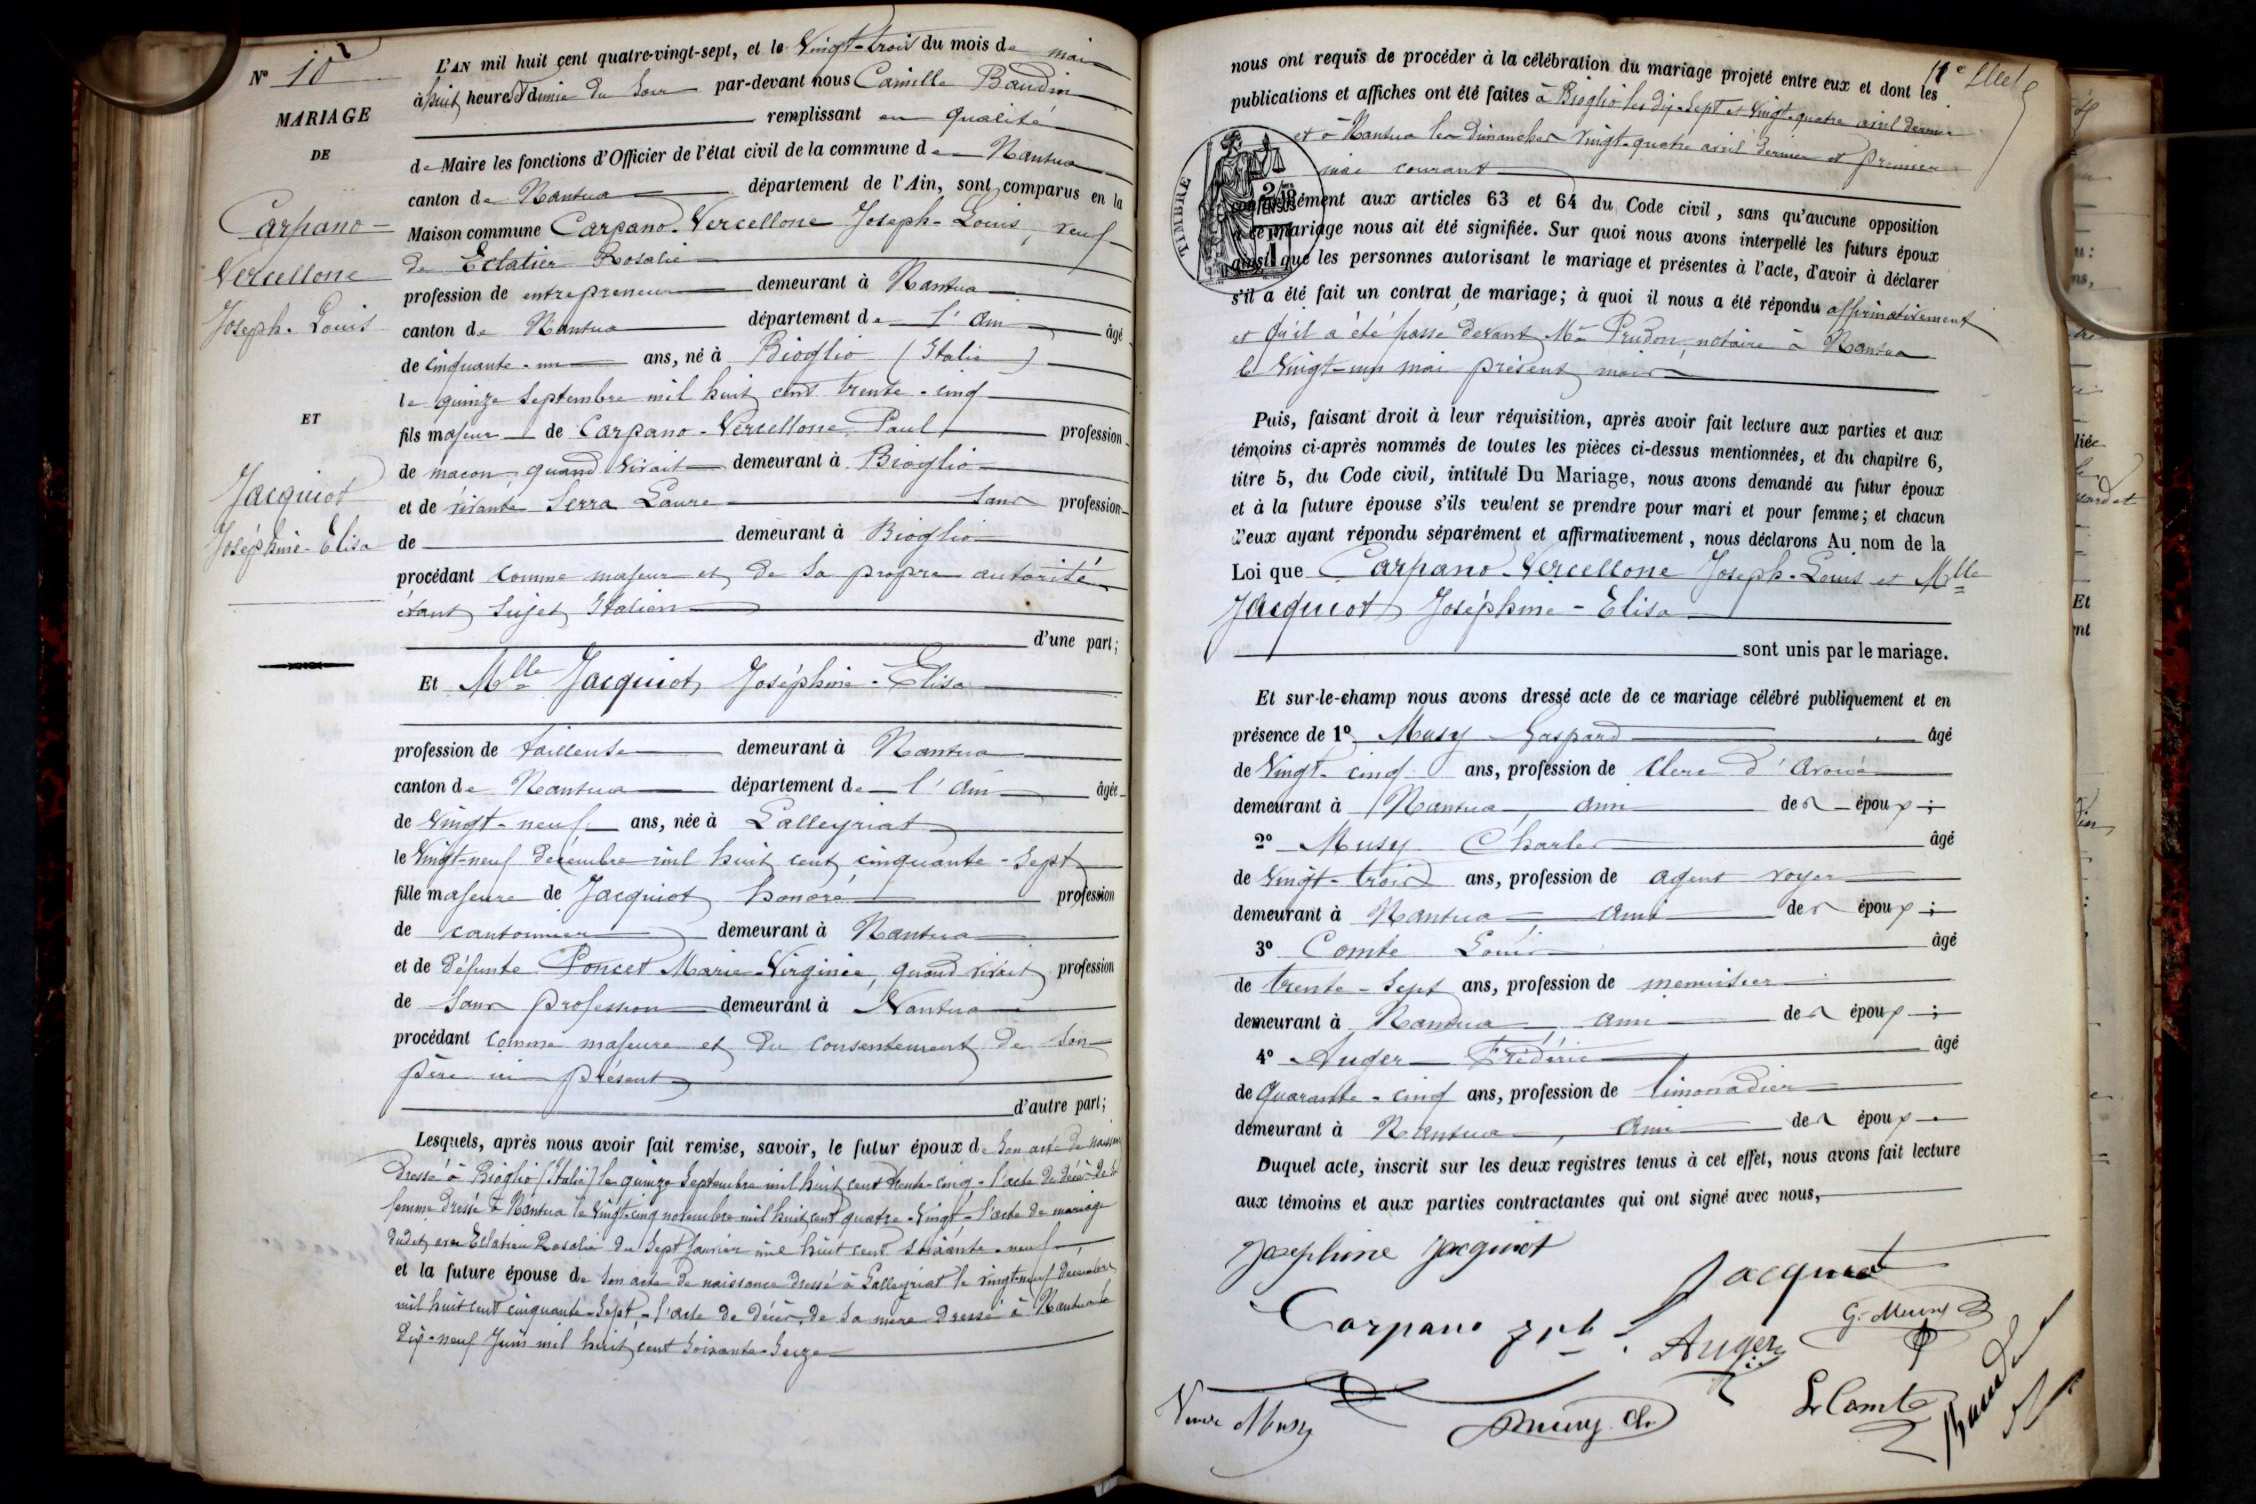 N° 10
MARIAGE
DE
Carpano-
Vercellone
Joseph-Louis
ET
Jacquiot
Joséphine-Elisa
L'AN mil huit cent quatre-vingt-sept, et le vingt-trois du mois de mai
à huit heures & demie du soir par-devant nous Camille Baudin
remplissant en qualité
de Maire les fonctions d'Officier de l'état civil de la commune de Nantua
canton de Nantua département de l'Ain, sont comparus en la
Maison commune Carpano-Vercellone Joseph-Louis, veuf
de Eclatier Rosalie
profession de entrepreneur demeurant à Nantua
canton de Nantua département de l'Ain âgé
de cinquante-un ans, né à Bioglio (Italie)
le quinze septembre mil huit cent trente-cinq
fils majeur de Carpano-Vercellone Paul profession
de maçon quand vivait demeurant à Bioglio
et de vivante Serra Laure sans profession
de demeurant à Bioglio
procédant comme majeur et de sa propre autorité
étant sujet Italien
d'une part;
Et Mlle Jacquiot Joséphine-Elisa
profession de tailleuse demeurant à Nantua
canton de Nantua département de l'Ain âgée
de vingt-neuf ans, née à Lalleyriat
le vingt-neuf décembre mil huit cent cinquante-sept
fille majeure de Jacquiot honoré profession
de cantonnier demeurant à Nantua
et de défunte Poncet Marie-Virginie, quand vivait profession
de sans profession demeurant à Nantua
procédant comme majeure et du consentement de son
père ici présent
d'autre part;
Lesquels, après nous avoir fait remise, savoir, le futur époux de son acte de naissance
dressé à Bioglio (Italie) le quinze septembre mil huit cent trente-cinq - l'acte de décès de sa
femme dressé à Nantua le vingt-cinq novembre mil huit cent quatre-vingt - l'acte de mariage
dudit avec Eclatier Rosalie du sept janvier mil huit cent soixante-neuf
et la future épouse de son acte de naissance dressé à Lalleyriat le vingt-neuf décembre
mil huit cent cinquante-sept, - l'acte de décès de sa mère dressé à Nantua le
dix-neuf Juin mil huit cent soixante-seize
nous ont requis de procéder à la célébration du mariage projeté entre eux et dont les
publications et affiches ont été faites à Bioglio les dix-sept et vingt-quatre avril dernier
et à Nantua les dimanches vingt-quatre avril dernier et premier
mai courant
TIMBRE
conformément aux articles 63 et 64 du Code civil, sans qu'aucune opposition
à ce mariage nous ait été signifiée. Sur quoi nous avons interpellé les futurs époux
ainsi que les personnes autorisant le mariage et présentes à l'acte, d'avoir à déclarer
s'il a été fait un contrat de mariage; à quoi il nous a été répondu affirmativement
et qu'il a été passé devant Me Prudon, notaire à Nantua
le vingt-un mai présent mois
Puis, faisant droit à leur réquisition, après avoir fait lecture aux parties et aux
témoins ci-après nommés de toutes les pièces ci-dessus mentionnées, et du chapitre 6,
titre 5, du Code civil, intitulé Du Mariage, nous avons demandé au futur époux
et à la future épouse s'ils veulent se prendre pour mari et pour femme; et chacun
d'eux ayant répondu séparément et affirmativement, nous déclarons Au nom de la
Loi que Carpano-Vercellone Joseph-Louis et Mlle
Jacquiot Joséphine-Elisa
sont unis par le mariage.
Et sur-le-champ nous avons dressé acte de ce mariage célébré publiquement et en
présence de 1° Musy Gaspard âgé
de vingt-cinq ans, profession de clerc d'avoué
demeurant à Nantua, ami des époux;
2° Musy Charles âgé
de vingt-trois ans, profession de agent voyer
demeurant à Nantua, ami des époux;
3° Comte Louis âgé
de trente-sept ans, profession de menuisier
demeurant à Nantua, ami des époux;
4° Auger Frédéric âgé
de quarante-cinq ans, profession de limonadier
demeurant à Nantua, ami des époux.
Duquel acte, inscrit sur les deux registres tenus à cet effet, nous avons fait lecture
aux témoins et aux parties contractantes qui ont signé avec nous,
Josephine Jacquiot
Jacquiot
Carpano
Auger
G. Musy
Musy
Musy Ch.
L. Comte
Baudin